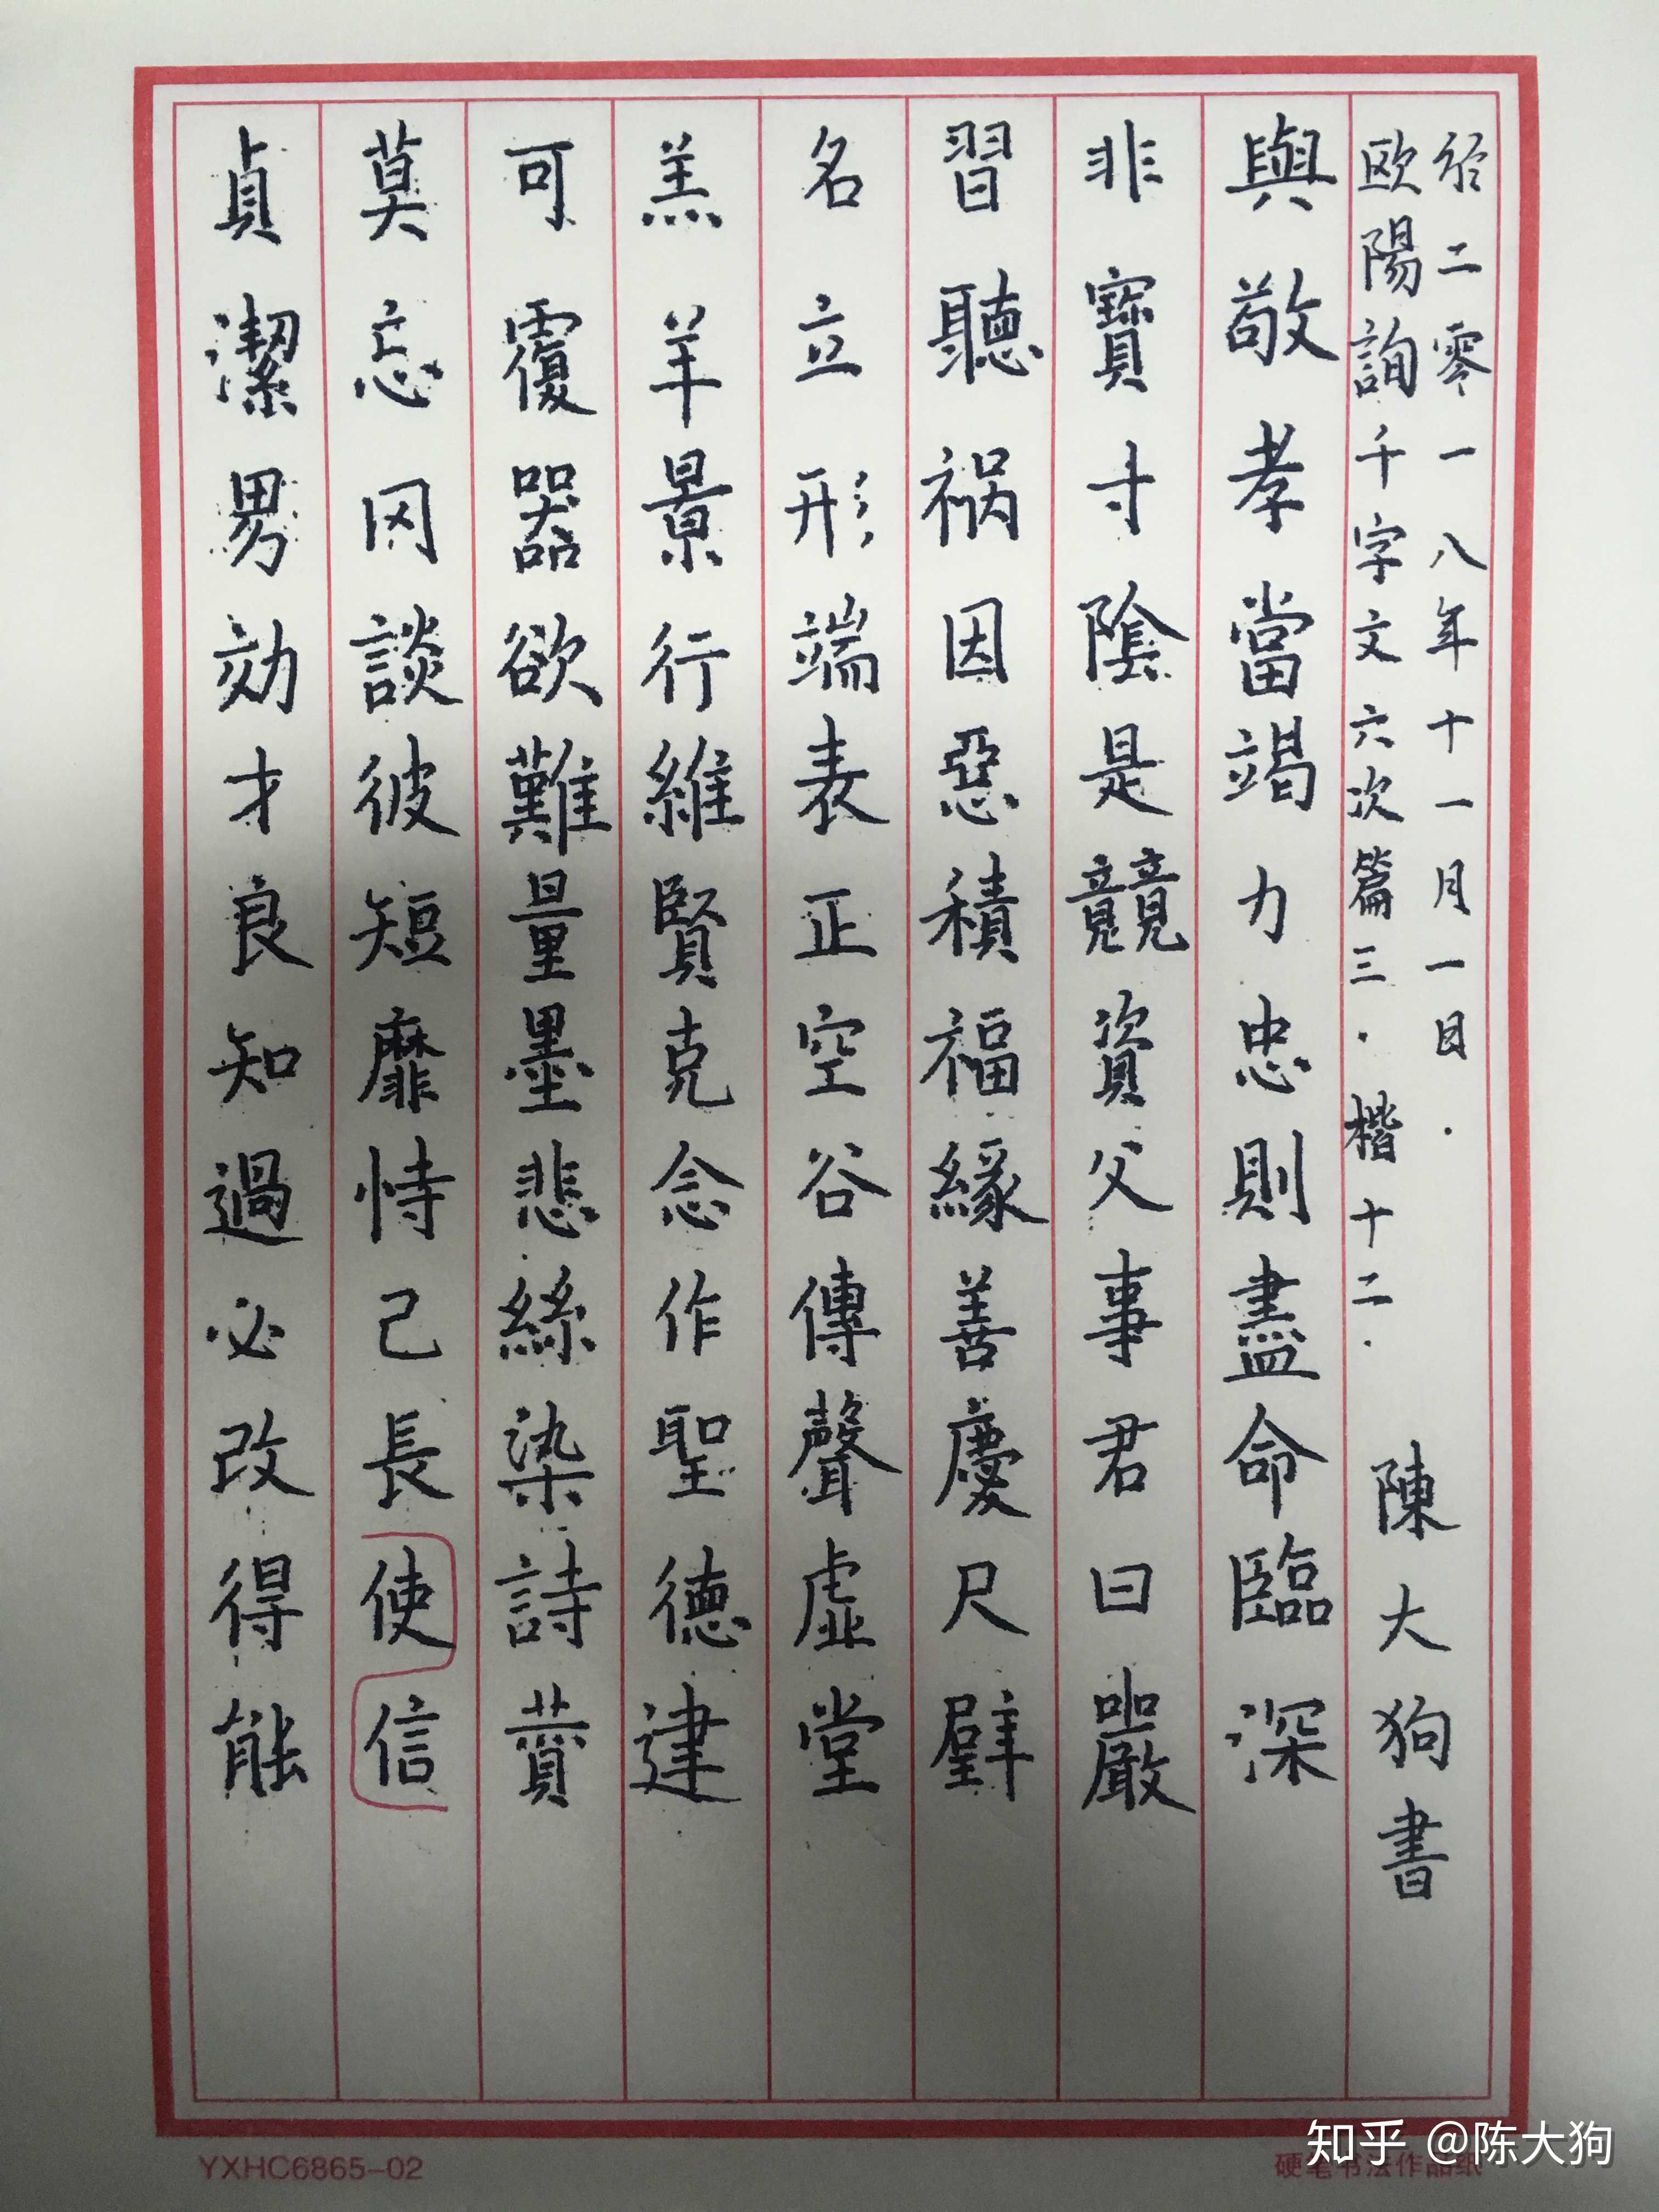 貞潔男効才良知過必改得能
莫忘罔談彼短靡恃己長使信
可覆器欲難量墨悲絲染詩賛
羔羊景行維賢克念作聖德建
名立形端表正空谷傳聲虛堂
習聽祸因惡積福緣善慶尺璧
非寶寸陰是競資父事君曰嚴
與敬孝當竭力忠則盡命臨深
欧陽詢千字文六次篇三.楷十二.
於二零一八年十一月一日.
陳大狗書
YXHC6865-02
硬笔书法作品纸
知乎 @陈大狗